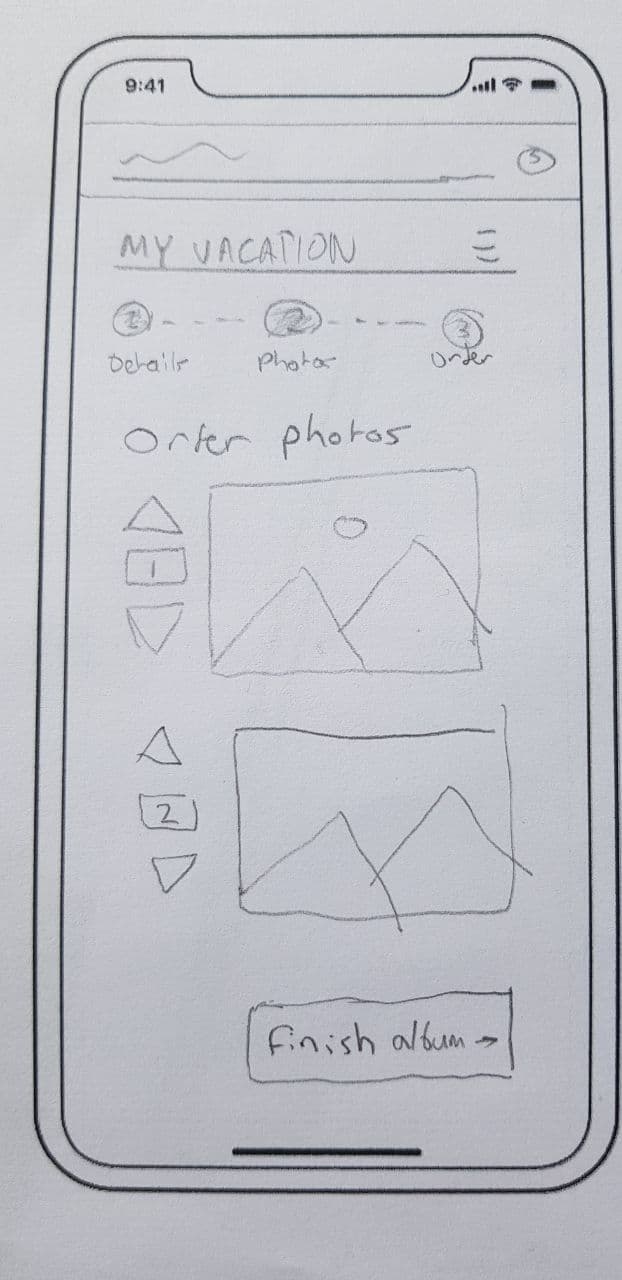 9:41
MY VACATION
1 2 3
Details Photos Order
Order photos
1
2
Finish album →